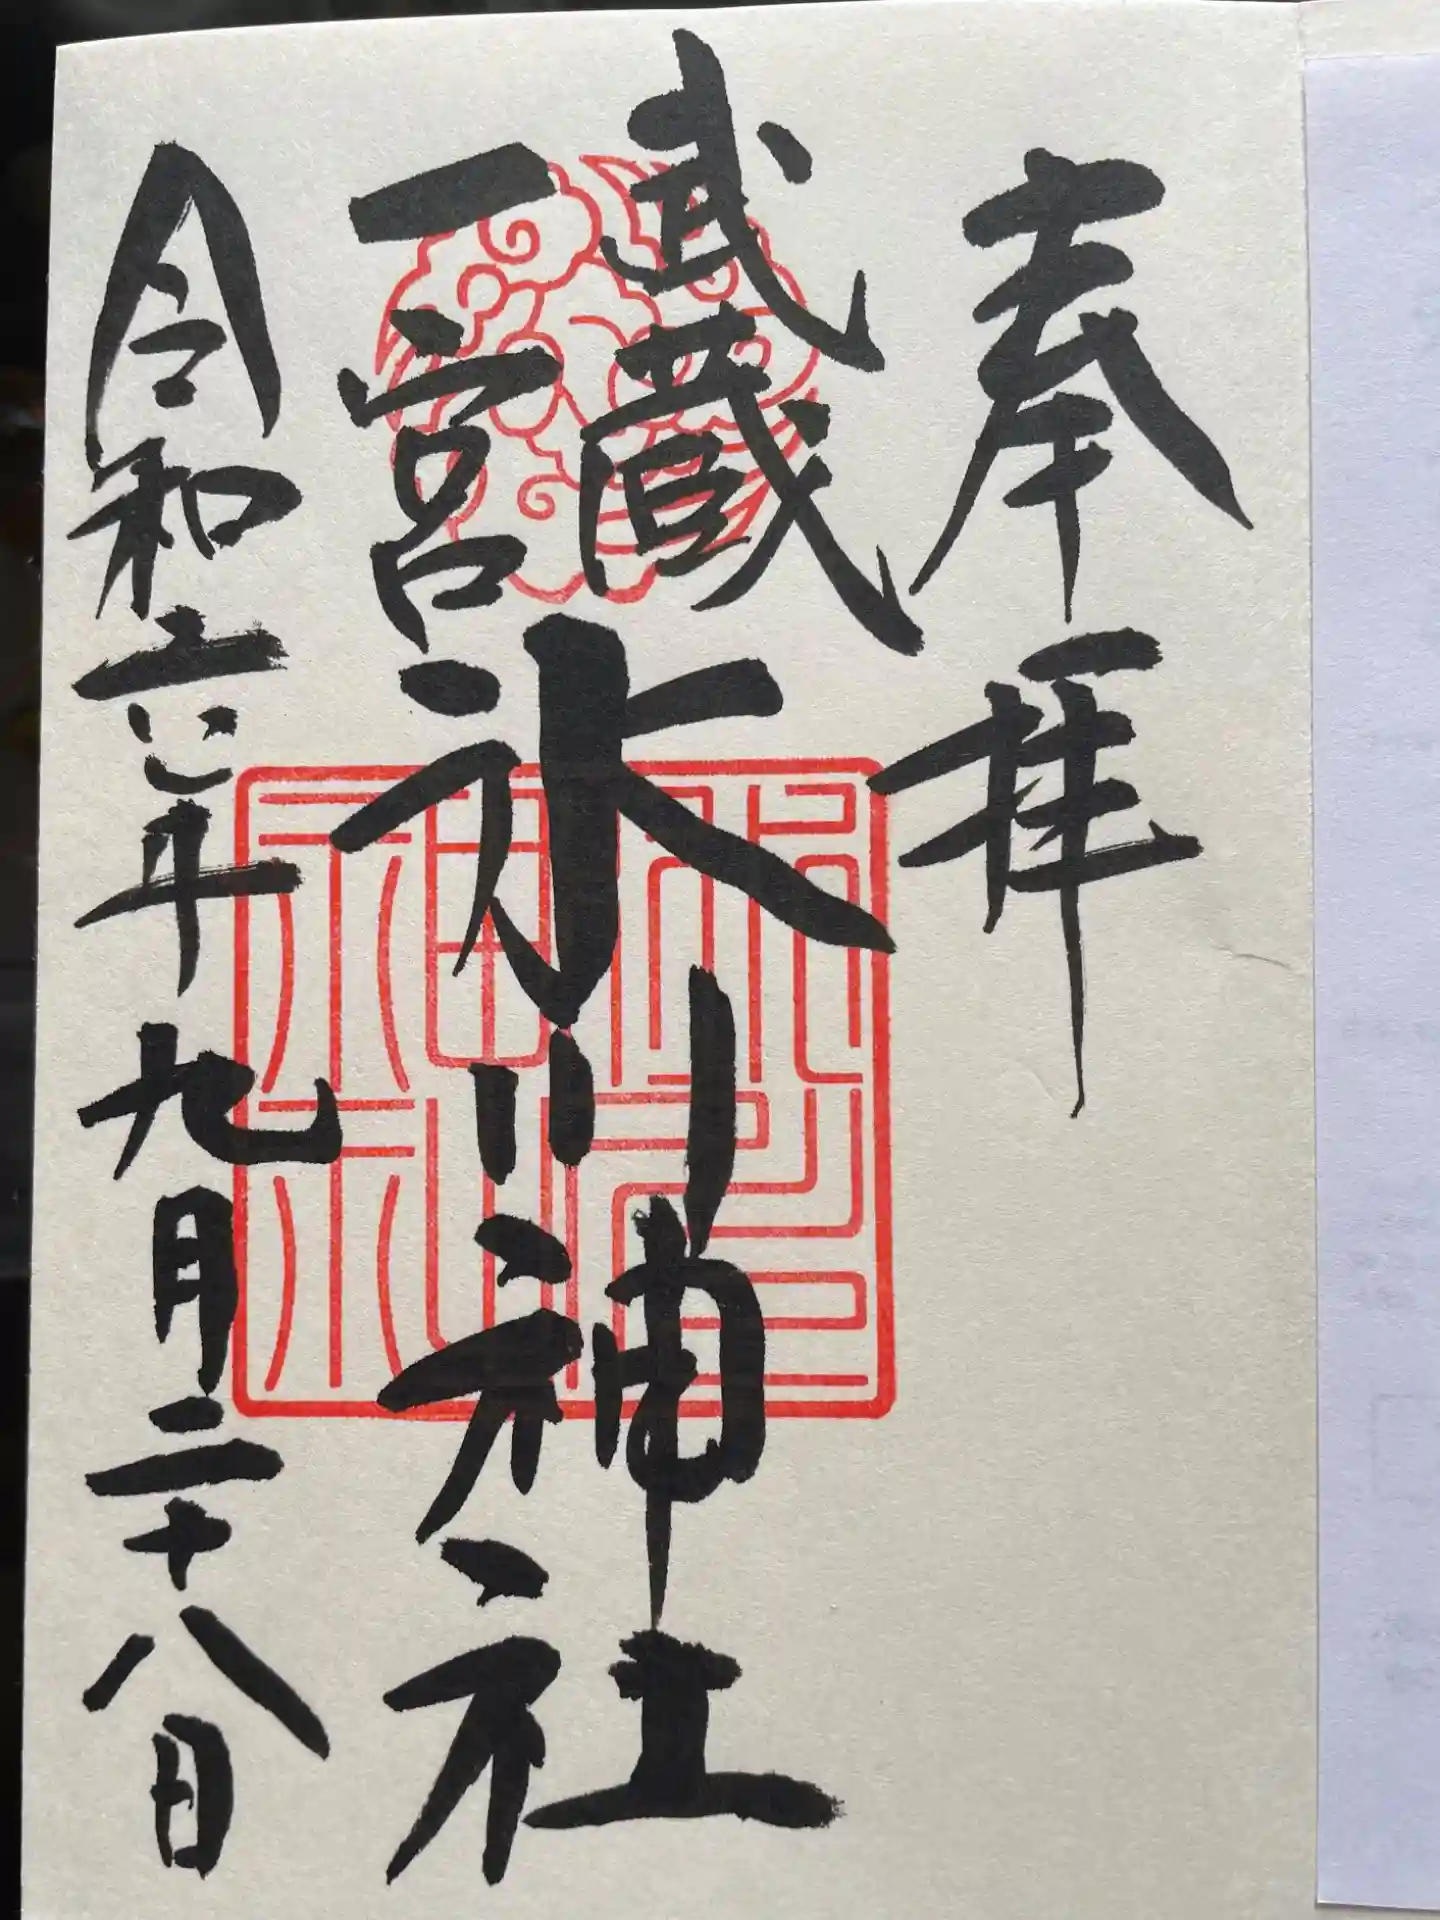 奉拝
武蔵
一宮
氷川神社
令和六年九月二十八日